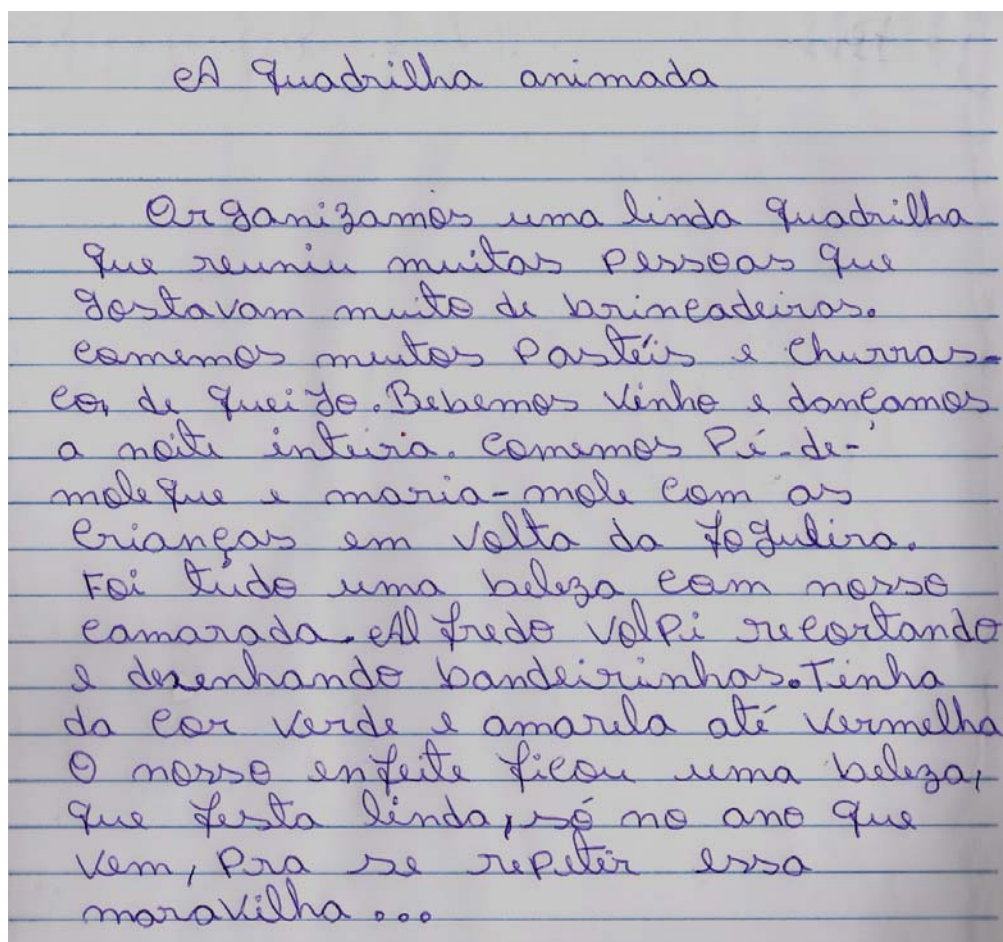 A quadrilha animada
Organizamos uma linda quadrilha
que reuniu muitas pessoas que
gostavam muito de brincadeiras.
comemos muitos Pastéis e churras-
co, de queijo. Bebemos vinho e dancamos
a noite inteira. comemos Pé-de-
moleque e maria-mole com as
crianças em volta da fogueira.
Foi tudo uma beleza com nosso
camarada. Alfredo Volpi recortando
e desenhando bandeirinhas. Tinha
da cor verde e amarela até vermelha
O nosso enfeite ficou uma beleza,
que festa linda, só no ano que
vem, Pra se repetir essa
maravilha...